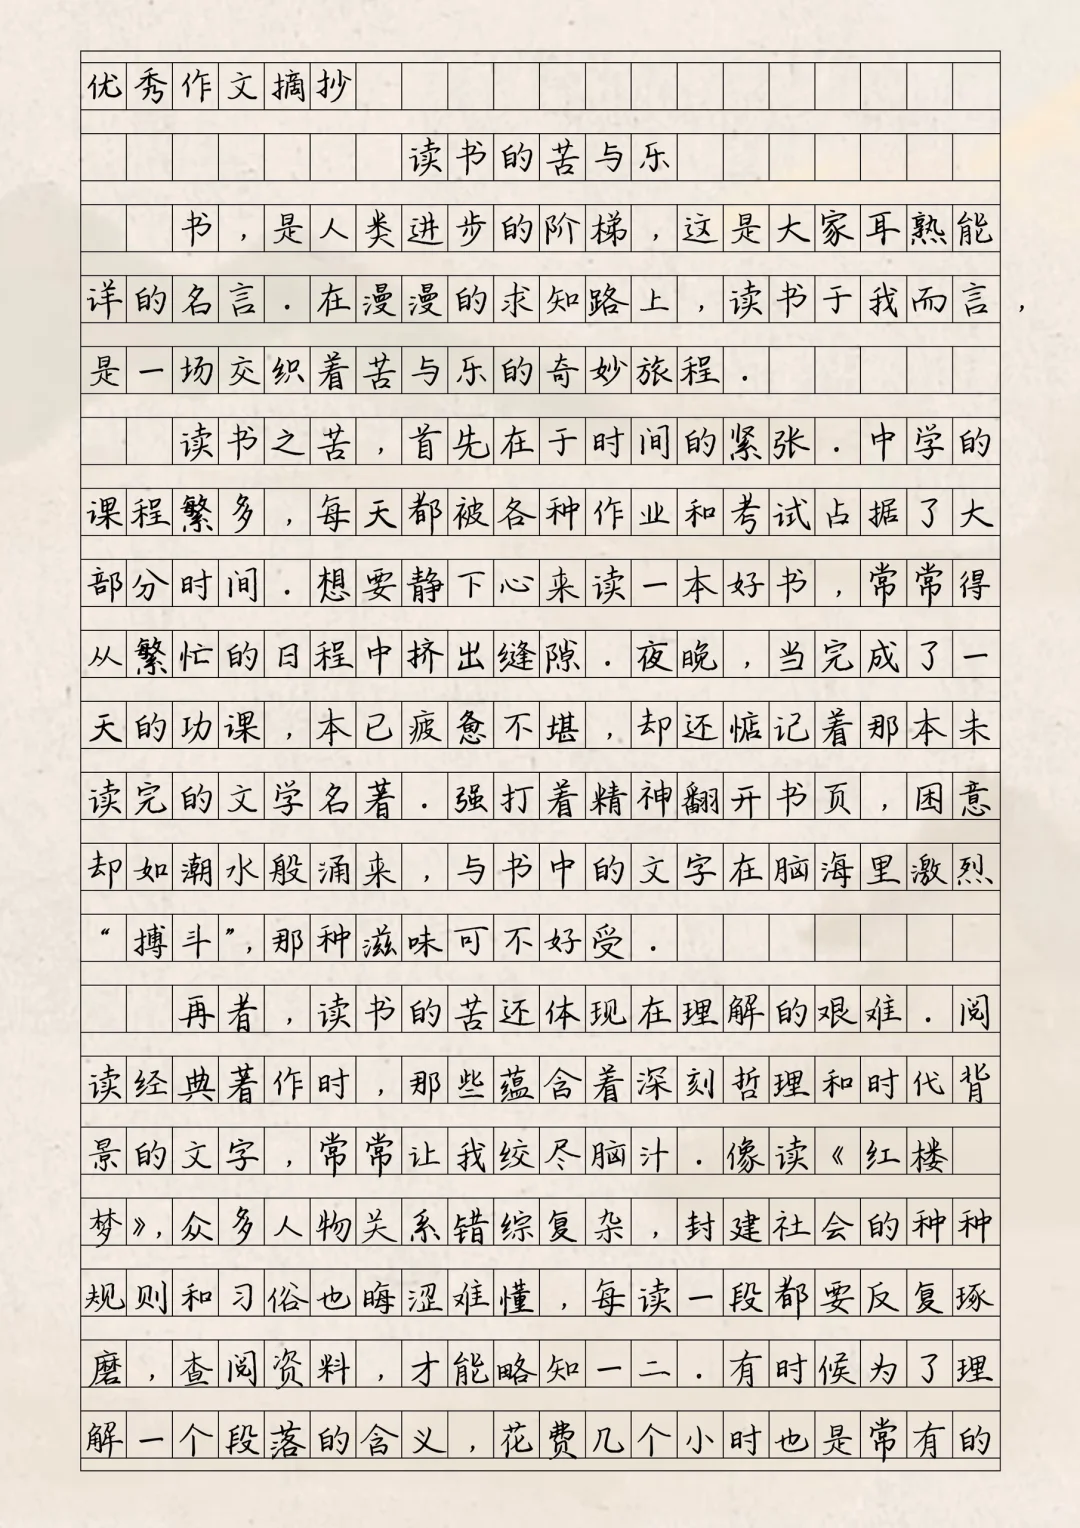 优秀作文摘抄
读书的苦与乐
书，是人类进步的阶梯，这是大家耳熟能
详的名言．在漫漫的求知路上，读书于我而言，
是一场交织着苦与乐的奇妙旅程．
读书之苦，首先在于时间的紧张．中学的
课程繁多，每天都被各种作业和考试占据了大
部分时间．想要静下心来读一本好书，常常得
从繁忙的日程中挤出缝隙．夜晚，当完成了一
天的功课，本已疲惫不堪，却还惦记着那本未
读完的文学名著．强打着精神翻开书页，困意
却如潮水般涌来，与书中的文字在脑海里激烈
“搏斗”，那种滋味可不好受．
再者，读书的苦还体现在理解的艰难．阅
读经典著作时，那些蕴含着深刻哲理和时代背
景的文字，常常让我绞尽脑汁．像读《红楼
梦》，众多人物关系错综复杂，封建社会的种种
规则和习俗也晦涩难懂，每读一段都要反复琢
磨，查阅资料，才能略知一二．有时候为了理
解一个段落的含义，花费几个小时也是常有的